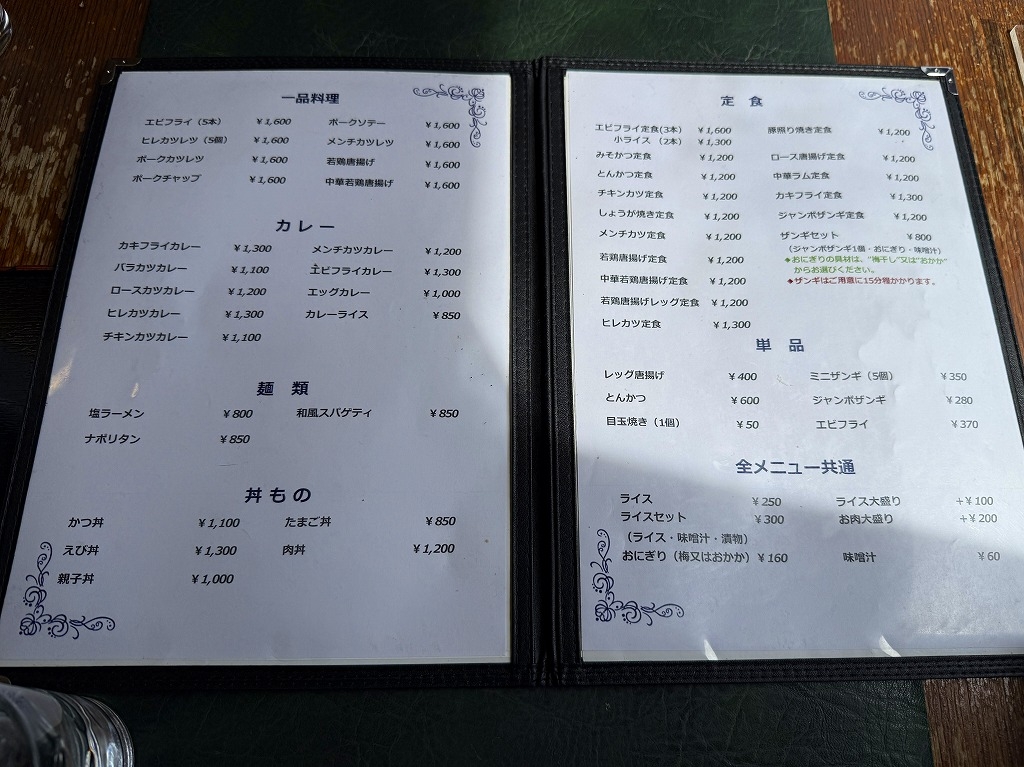 一品料理
エビフライ（5本） ￥1,600 ポークソテー ￥1,600
ヒレカツレツ（5個） ￥1,600 メンチカツレツ ￥1,600
ポークカツレツ ￥1,600 若鶏唐揚げ ￥1,600
ポークチャップ ￥1,600 中華若鶏唐揚げ ￥1,600
カレー
カキフライカレー ￥1,300 メンチカツカレー ￥1,200
バラカツカレー ￥1,100 エビフライカレー ￥1,300
ロースカツカレー ￥1,200 エッグカレー ￥1,000
ヒレカツカレー ￥1,300 カレーライス ￥850
チキンカツカレー ￥1,100
麺 類
塩ラーメン ￥800 和風スパゲティ ￥850
ナポリタン ￥850
丼もの
かつ丼 ￥1,100 たまご丼 ￥850
えび丼 ￥1,300 肉丼 ￥1,200
親子丼 ￥1,000
定 食
エビフライ定食(3本) ￥1,600 豚照り焼き定食 ￥1,200
小ライス （2本） ￥1,300
みそかつ定食 ￥1,200 ロース唐揚げ定食 ￥1,200
とんかつ定食 ￥1,200 中華ラム定食 ￥1,200
チキンカツ定食 ￥1,200 カキフライ定食 ￥1,300
しょうが焼き定食 ￥1,200 ジャンボザンギ定食 ￥1,200
メンチカツ定食 ￥1,200 ザンギセット ￥800
（ジャンボザンギ1個・おにぎり・味噌汁）
若鶏唐揚げ定食 ￥1,200 ◆おにぎりの具材は、“梅干し”又は“おかか”
からお選びください。
中華若鶏唐揚げ定食 ￥1,200 ◆ザンギはご用意に15分程かかります。
若鶏唐揚げレッグ定食 ￥1,200
ヒレカツ定食 ￥1,300
単 品
レッグ唐揚げ ￥400 ミニザンギ（5個） ￥350
とんかつ ￥600 ジャンボザンギ ￥280
目玉焼き（1個） ￥50 エビフライ ￥370
全メニュー共通
ライス ￥250 ライス大盛り +￥100
ライスセット ￥300 お肉大盛り +￥200
（ライス・味噌汁・漬物）
おにぎり（梅又はおかか）￥160 味噌汁 ￥60